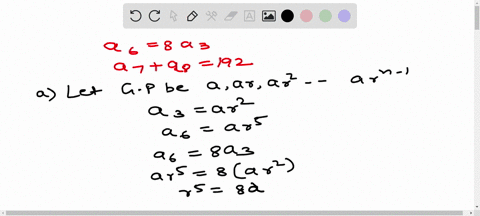 a₆ = 8 a₃
a₇ + a₈ = 192
a) Let G.P be a, ar, ar² -- ar^(n-1)
a₃ = ar²
a₆ = ar⁵
a₆ = 8a₃
ar⁵ = 8(ar²)
r⁵ = 8a